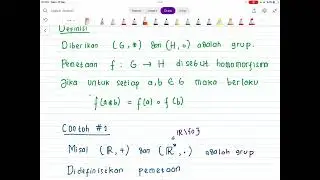 Definisi
Diberikan (G, *) dan (H, o) adalah grup.
Pemetaan f : G → H disebut homomorfisma
jika untuk setiap a, b ∈ G maka berlaku
f(a*b) = f(a) o f(b)
Contoh #1
ℝ\{0}
Misal (ℝ, +) dan (ℝ*, ·) adalah grup
Didefinisikan pemetaan